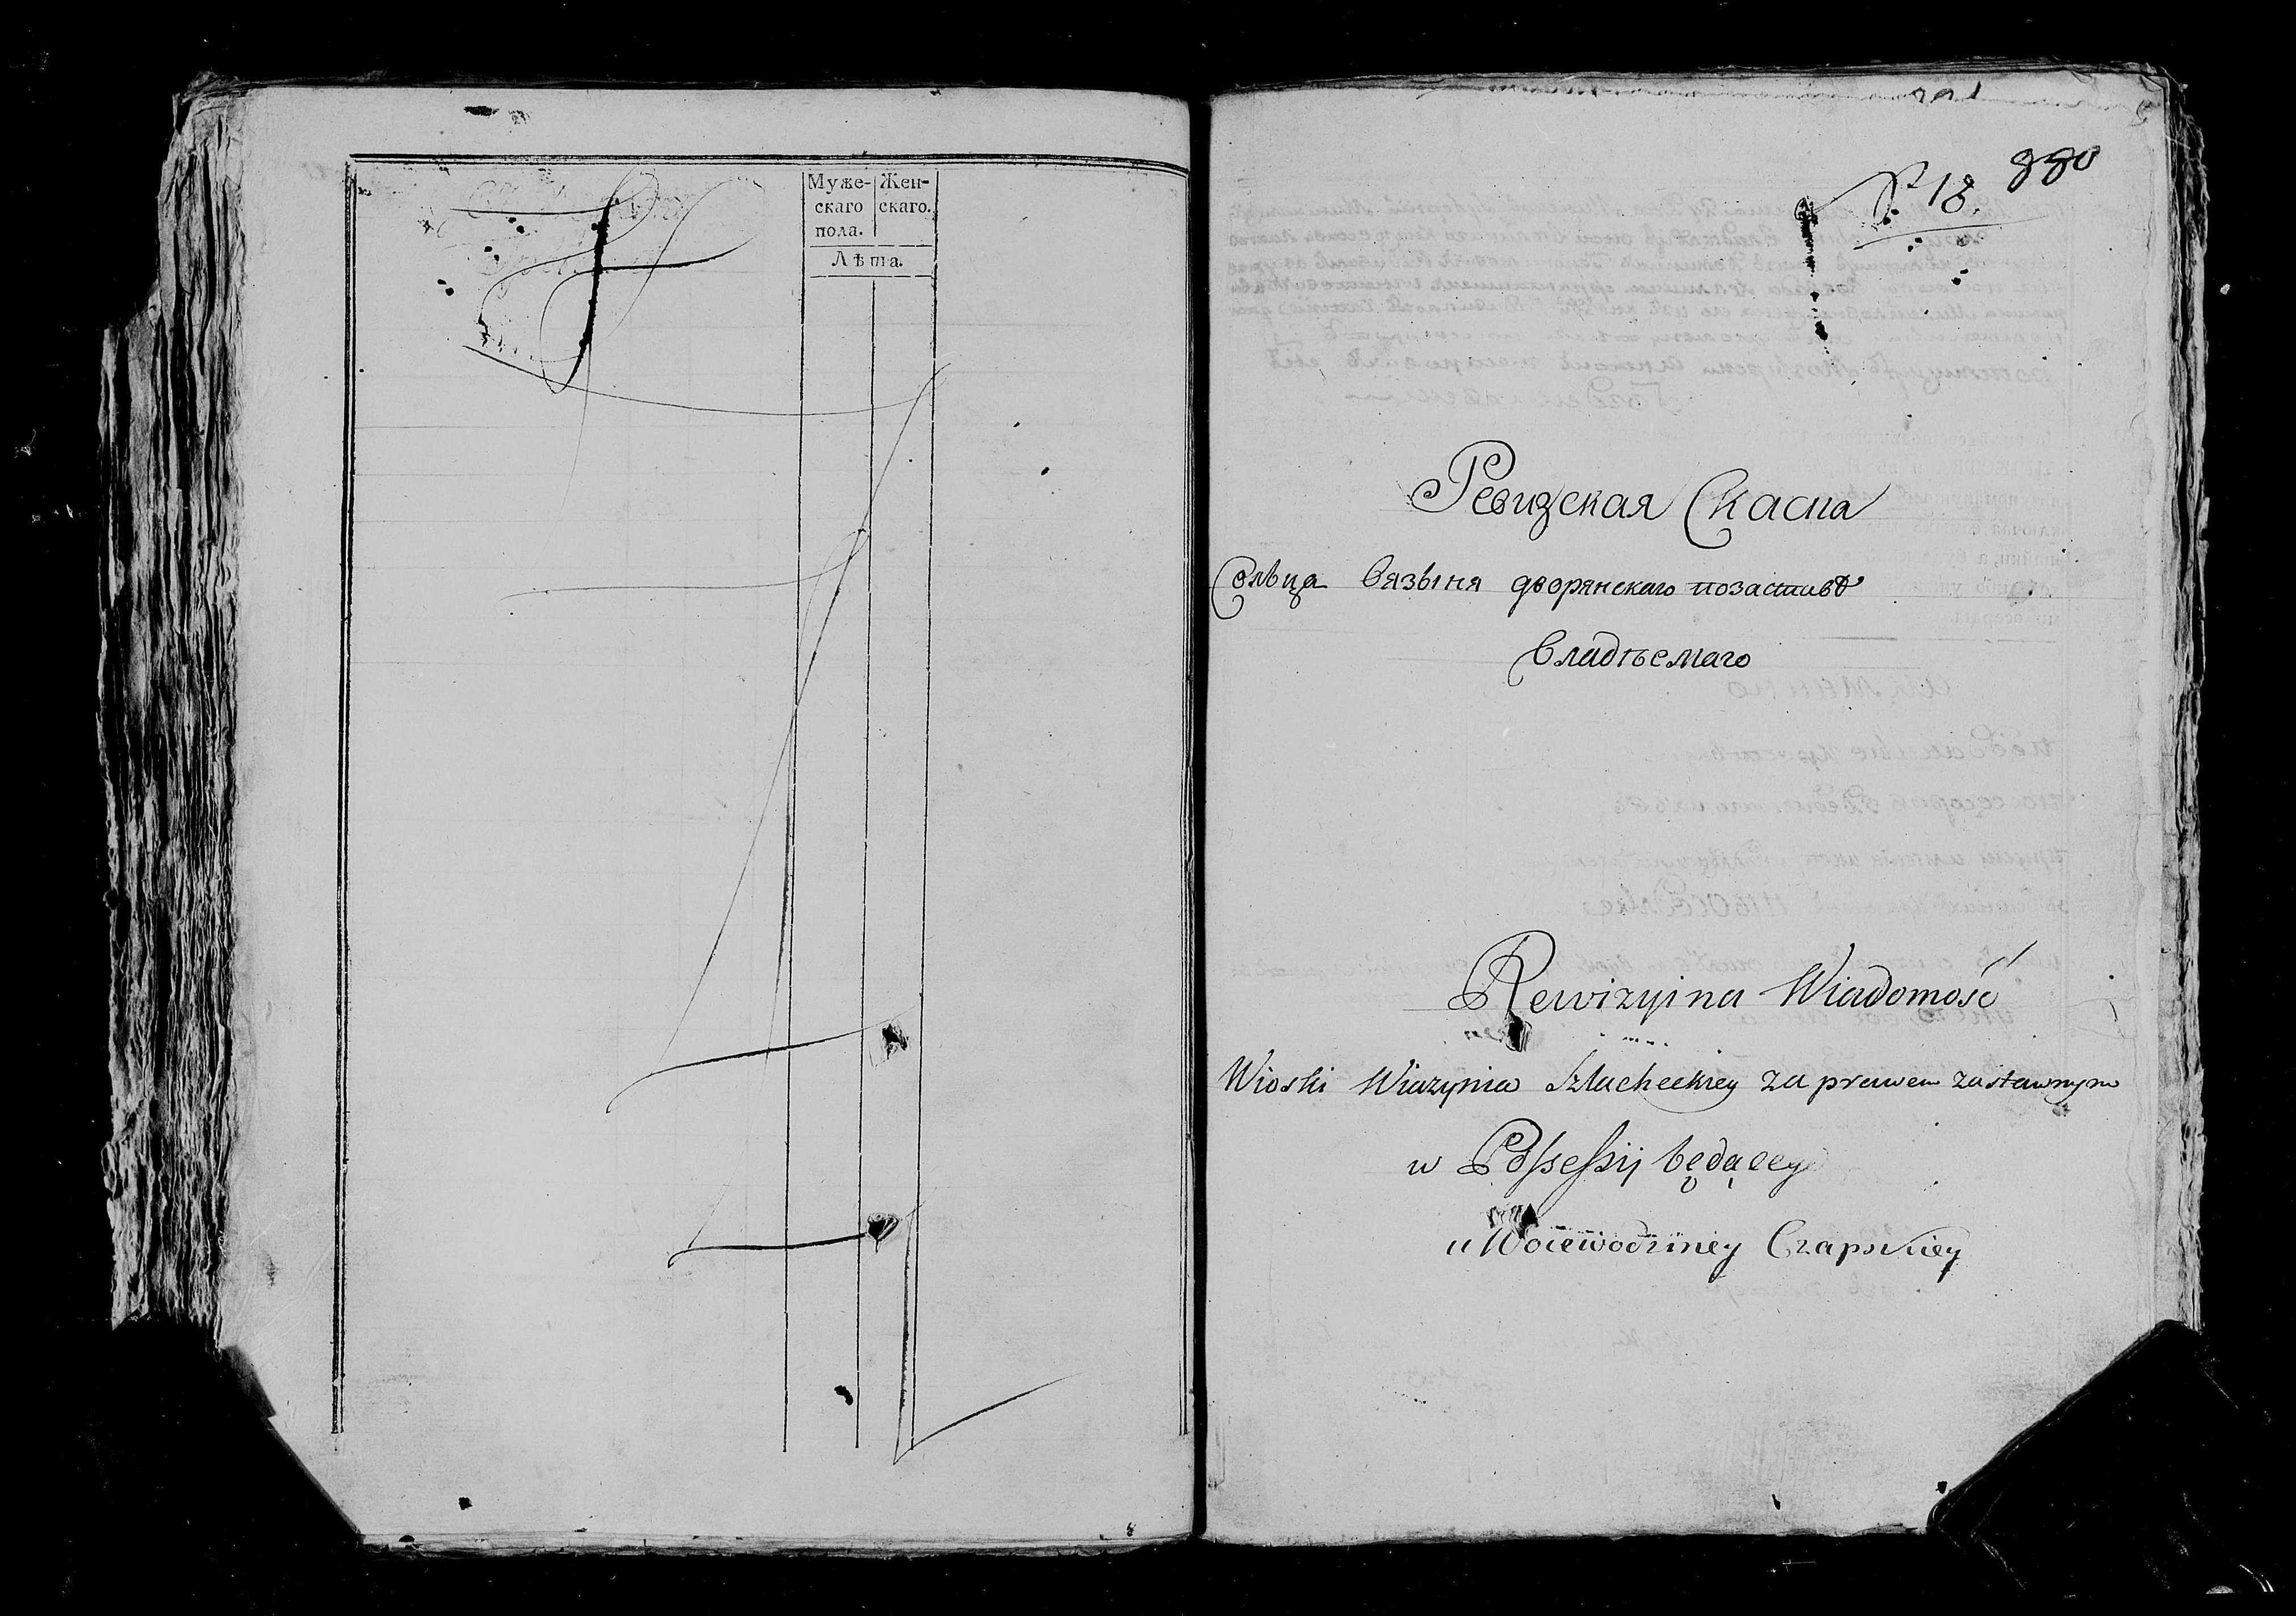 Муже- Жен-
скаго скаго.
пола.
Лѣта.
№ 18. 880
Ревизская Скаска
Сельца Вязыня дворянскаго позаставѣ
Владѣемаго
Rewizyina Wiadomość
Wioski Wiazynia Szlacheckiey za prawem zastawnym
w Possessyi będącey
u Woiewodziney Czapskiey